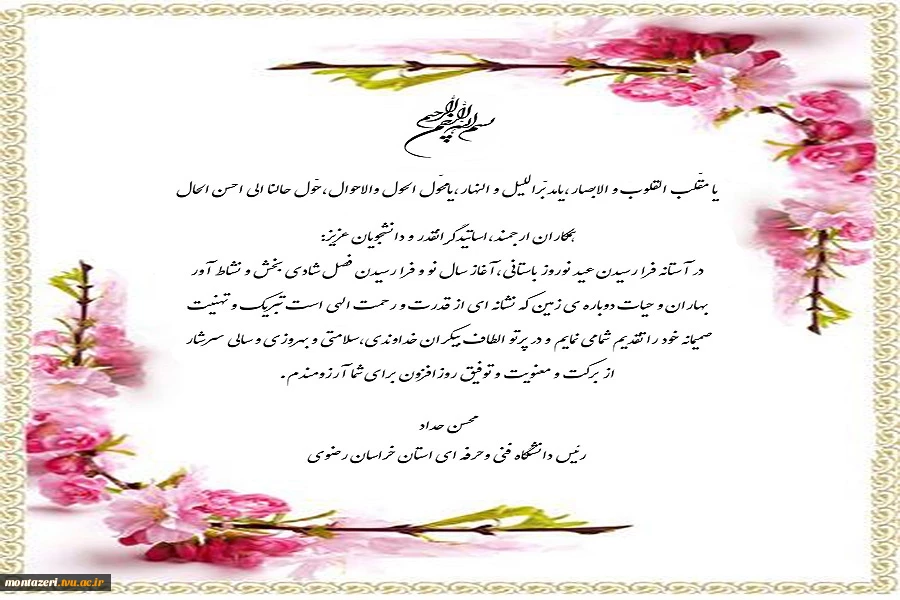 بسم الله الرحمن الرحیم
یا مقلّب القلوب و الابصار، یا مدبّر اللیل و النهار، یا محوّل الحول والاحوال، حوّل حالنا الی احسن الحال
همکاران ارجمند، اساتید گرانقدر و دانشجویان عزیز:
در آستانه فرا رسیدن عید نوروز باستانی، آغاز سال نو و فرا رسیدن فصل شادی بخش و نشاط آور
بهاران و حیات دوباره ی زمین که نشانه ای از قدرت و رحمت الهی است تبریک و تهنیت
صمیمانه خود را تقدیم شما می نمایم و در پرتو الطاف بیکران خداوندی، سلامتی و بهروزی و سالی سرشار
از برکت و معنویت و توفیق روزافزون برای شما آرزومندم.
محسن حداد
رئیس دانشگاه فنی و حرفه ای استان خراسان رضوی
montazeri.tvu.ac.ir